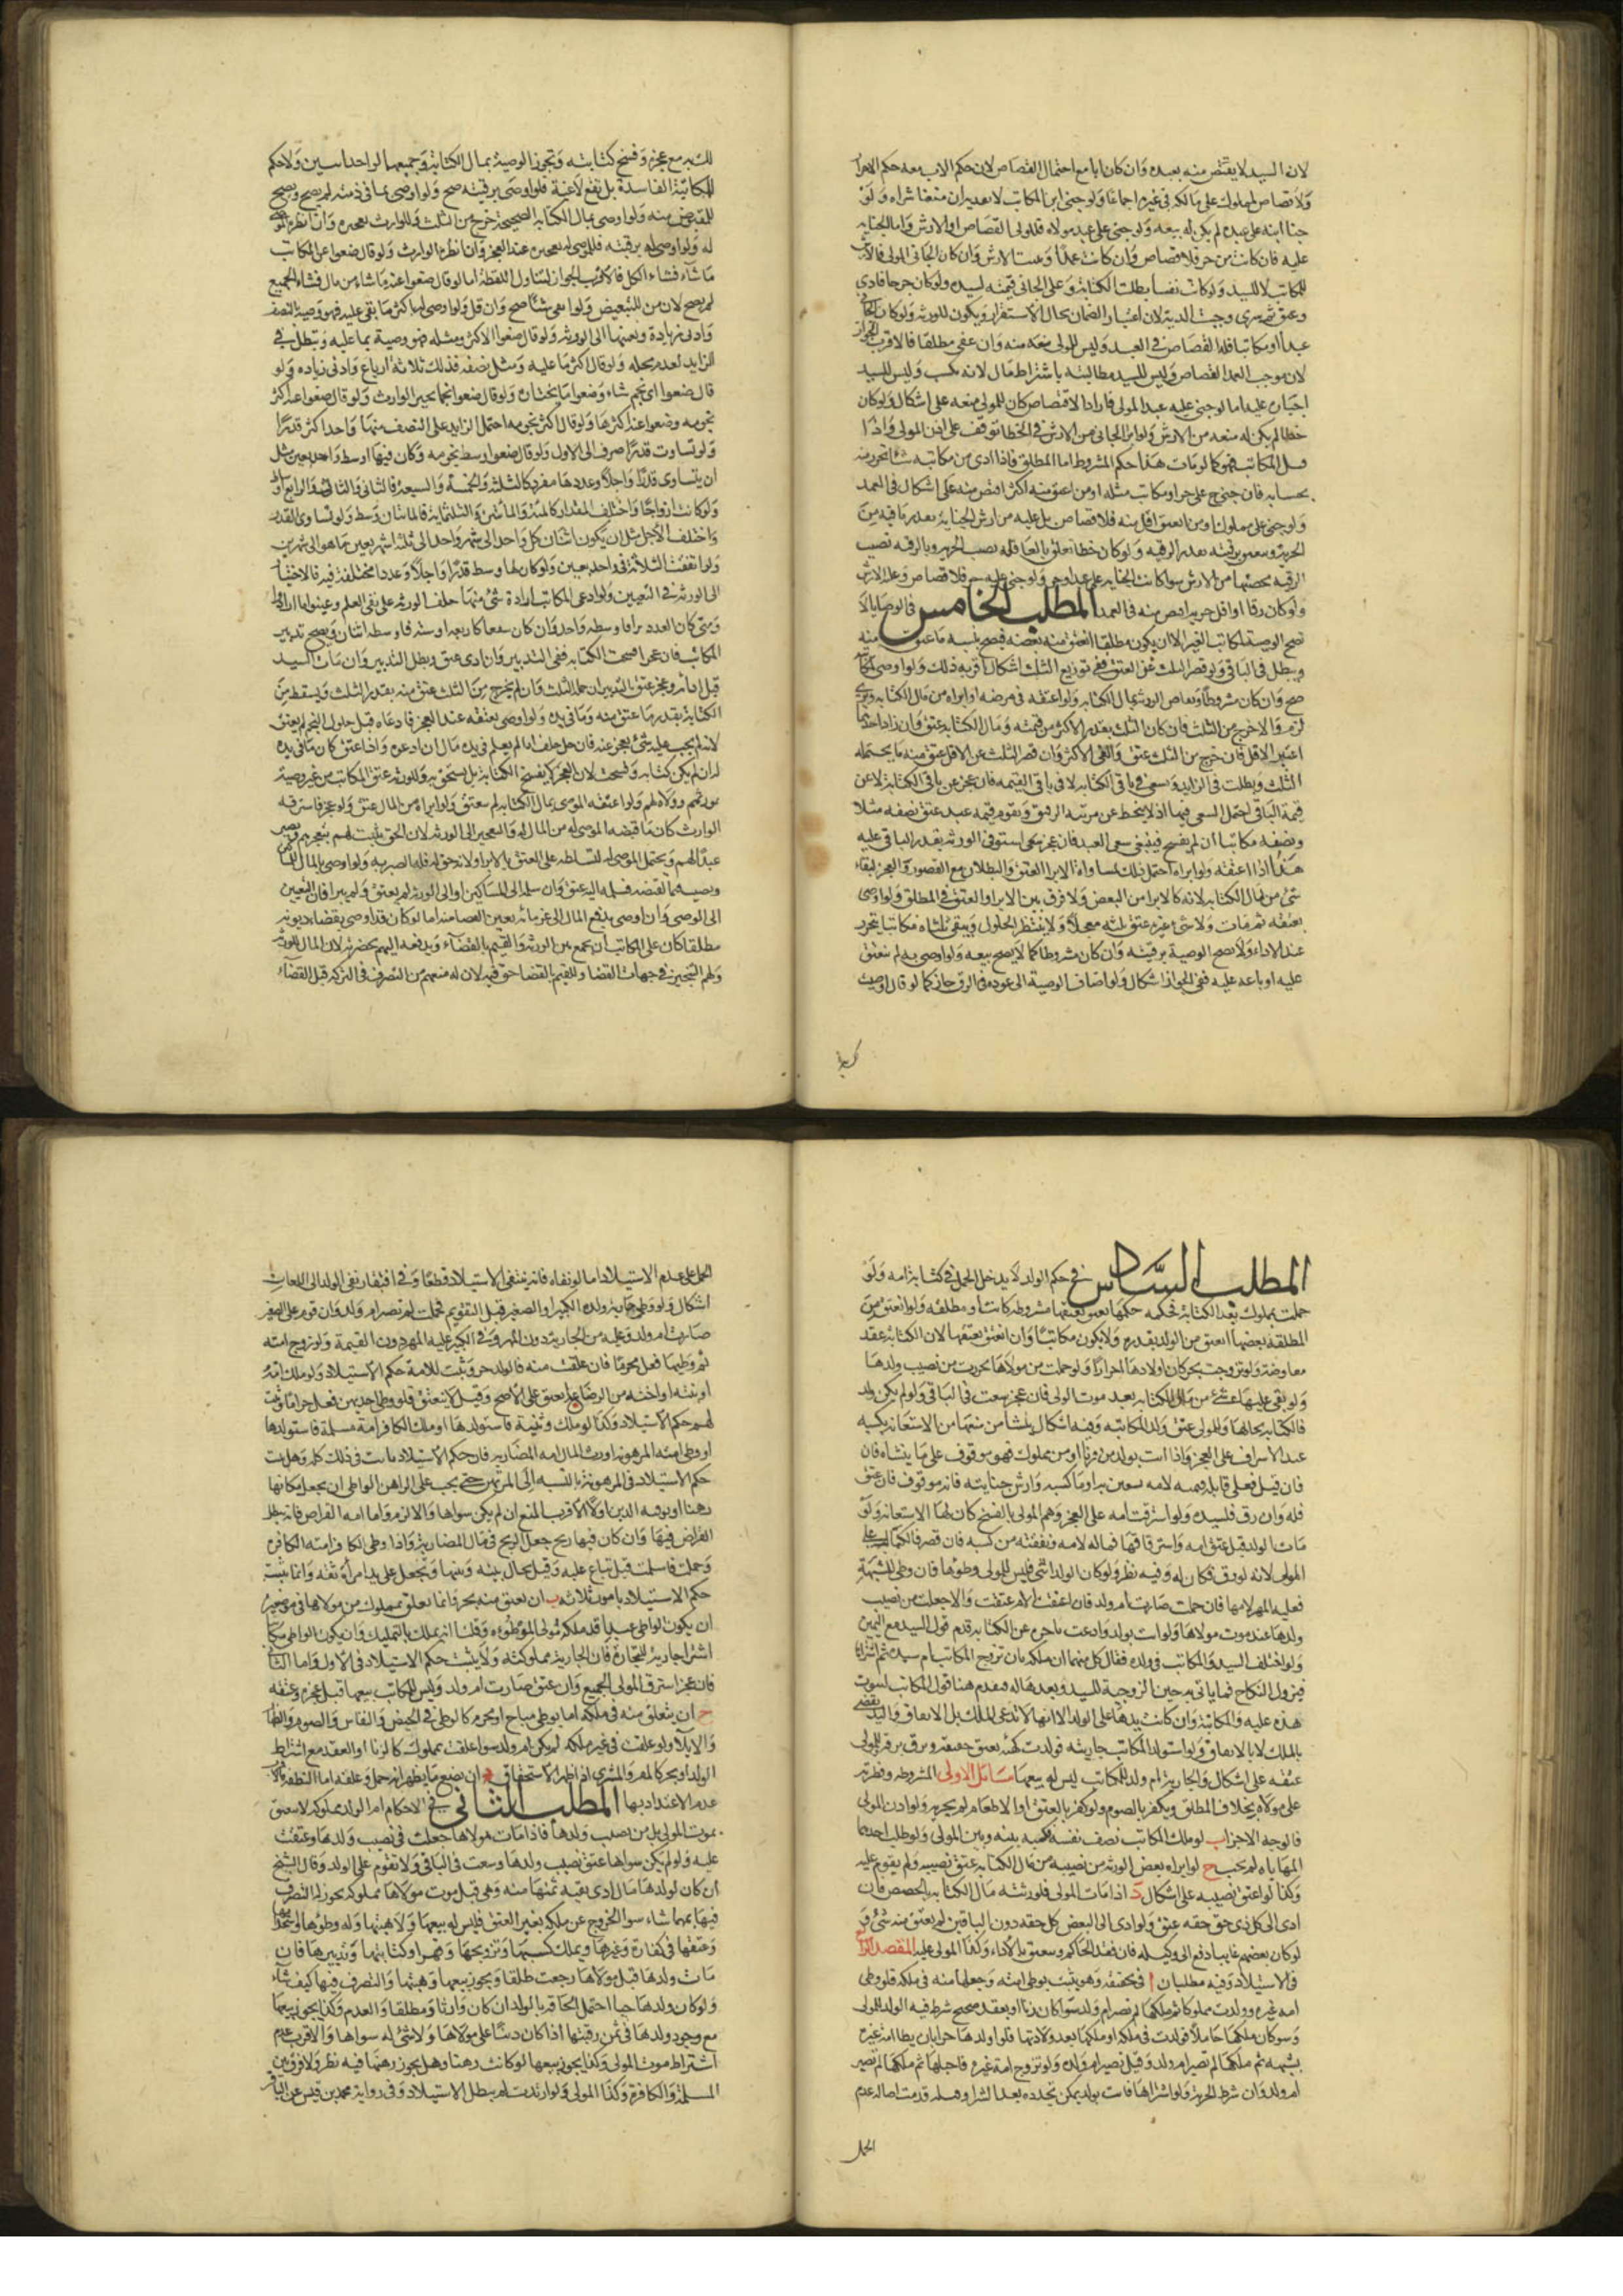 لان السيد لا يقتص منه بعبده وان كان ابا مع احتمال القصاص لان حكم الاب معه حكم الاحرار
ولا قصاص لمملوك على مالكه في غيره اجماعا ولو جنى ابن المكاتب لا بعد ان منعنا شراه ولو
جنا ابنه على عبده لم يكن له بيعه ولو جنى على عبد مولاه فللمولى القصاص او الارش واما الجناية
عليه فان كانت من حر فلا قصاص وان كانت عمدا وعليه الارش وان كان الجاني المولى فالارش
للمكاتب لا للسيد ولو كانت نفسا بطلت الكتابة وعلى الجاني قيمته لسيده ولو كان جرحا فادى
وعتق ثم سرى وجبت الدية لان اعتبار الضمان بحال الاستقرار ويكون للورثة ولو كان الجاني
عبدا او مكاتبا فله القصاص في العمد وليس للمولى منعه منه وان عفى مطلقا فالاقرب الجواز
لان موجب العمد القصاص وليس للسيد مطالبته باشتراط مال لانه كسب وليس للسيد
اجباره عليه اما لو جنى عليه عبد المولى فاراد الاقتصاص كان للمولى منعه على اشكال ولو كان
خطا لم يكن له منعه من الارش ولو ابرا الجاني من الارش في الخطا توقف على اذن المولى واذا
قتل المكاتب فهو كما لو مات هذا حكم المشروط اما المطلق فاذا ادى من مكاتبه شيئا تحرر منه
بحسابه فان جنى على حر او مكاتب مثله او من اعتق منه اكثر اقتص منه على اشكال في العمد
ولو جنى على مملوك او من انعتق اقل منه فلا قصاص بل عليه من ارش الجناية بقدر ما فيه من
الحرية ويتعلق برقبته بقدر الرقية ولو كان خطا تعلق بالعاقلة نصيب الحرية وبالرقبة نصيب
الرقية بحصتها من الارش سوا كانت الجناية على عبد او حر ولو جنى عليه حر فلا قصاص وعليه الارش
ولو كان رقا او اقل حرية اقتص منه في العمد المطلب الخامس في الوصايا لا
تصح الوصية لمكاتب الغير الا ان يكون مطلقا انعتق منه بعضه فيصح بنسبة ما عتق منه
ويبطل في الباقي ولو قصر الثلث عن العتق ففي توزيع الثلث اشكال اقربه ذلك ولو اوصى لمكاتبه
صح وان كان مشروطا ويقاص الورثة بمال الكتابة ولو اعتقه في مرضه او ابراه من مال الكتابة وبرئ
لزم والا خرج من الثلث فان كان الثلث بقدر الاكثر من قيمته ومال الكتابة عتق وان زاد احدهما
اعتبر الاقل فان خرج من الثلث عتق والغي الاكثر وان قصر الثلث عن الاقل عتق منه ما يحتمله
الثلث وبطلت في الزايد ويسعى في باقي الكتابة لا في باقي القيمة فان عجز عن باقي الكتابة لا عن
قيمة الباقي احتمل السعي فيها اذ لا ينحط عن مرتبة الرق وتقوم قيمة عبد عتق نصفه مثلا
ونصفه مكاتبا ان لم يفسخ فينبغي سعي العبد فان عجز سعى استوفى الورثة بقدر الباقي عليه
هذا اذا اعتقه ولو ابراه احتمل ذلك لمساواة الابرا العتق والبطلان مع القصور والعجز لبقاء
شئ من مال الكتابة لانه كالابرا من البعض ولا فرق بين الابرا والعتق في المطلق ولو اوصى
بعتقه ثم مات ولا شئ غيره عتق ثلثه معجلا ولا ينتظر الحلول ويبقى ثلثاه مكاتبا يتحرر
عند الاداء ولا يصح الوصية برقبته وان كان مشروطا كما لا يصح بيعه ولو اوصى به لم ينعتق
عليه او باعه عليه ففي الجواز اشكال ولو اضاف الوصية الى عوده في الرق جاز كما لو قال اوصيت
لك به مع عجزه وفسخ كتابته وتجوز الوصية بمال الكتابة وجميعها لواحد او اثنين ولا حكم
للكتابة الفاسدة بل تقع لاغية فلو اوصى برقبته صح ولو اوصى بما في ذمته لم يصح ويصح
للمقبوض منه ولو اوصى بمال الكتابة الصحيحة خرج من الثلث وللوارث تعجيزه وان انظره الموصى
له ولو اوصى له برقبته فللموصى له تعجيزه عند العجز وان انظره الوارث ولو قال ضعوا عن المكاتب
ما شاء فشاء الكل فالاقرب الجواز لتناول اللفظ اما لو قال ضعوا عنه ما شاء من مال فشاء الجميع
لم يصح لان من للتبعيض ولو ابقى شيئا صح وان قل ولو اوصى له باكثر ما بقي عليه فهو وصية بالنصف
وادنى زيادة وتعينها الى الورثة ولو قال ضعوا الاكثر ومثله فهو وصية بما عليه وتبطل في
الزايد لعدم محله ولو قال اكثر ما عليه ومثل نصفه فذلك ثلاثة ارباع وادنى زيادة ولو
قال ضعوا اي نجم شاء وضعوا ما يختاره ولو قال ضعوا نجما تخير الوارث ولو قال ضعوا عنه اكثر
نجومه وضعوا عنه اكثرها ولو قال اكثر نجومه احتمل الزايد على النصف منها واحدا اكثر قدرا
ولو تساوت قدرا صرف الى الاول ولو قال ضعوا اوسط نجومه وكان فيها اوسط واحد تعين مثل
ان يتساوى قدرا واجلا وعددها مفرد كالثلثة والخمسة والسبعة فالثاني والثالث والرابع اوسط
ولو كانت ازواجا واختلف المقدار كالمئة والمائتين والثلثماية فالمائتان وسط ولو تساوى القدر
واختلف الاجل مثل ان يكون اثنان كل واحد الى شهر وواحد الى ثلثة اشهر تعين ما هو الى شهرين
ولو اتفقت الثلاثة في واحد تعين ولو كان لها وسط قدرا واجلا وعددا مختلفة فيه فالاختيار
الى الورثة في التعيين ولو ادعى المكاتب ارادة شئ منها حلف الورثة على نفي العلم وعينوا ما ارادوا
ومتى كان العدد وترا فاوسطه واحد وان كان شفعا كاربعة او ستة فاوسطه اثنان ويصح تدبير
المكاتب فان عجز فسخت الكتابة ففي التدبير وان ادى عتق وبطل التدبير وان مات السيد
قبل ادائه وعجزه عتق بالتدبير ان حمله الثلث وان لم يخرج من الثلث عتق منه بقدر الثلث ويسقط من
الكتابة بقدر ما عتق منه وما في يده ولو اوصى بعتقه عند العجز فادعاه قبل حلول النجم لم يعتق
لانه لم يجب عليه شئ يعجز عنه فان حل حلف ما لم يعلم في يده مال ان ادعوه واذا عتق كان ما في يده
له ان لم يكن كتابة وفسخت لان العجز لا يفسخ الكتابة بل يستحق به وللورثة عتق المكاتب من غير وصية
مورثهم وولاه لهم ولو اعتقه الموصى بمال الكتابة لم ينعتق ولو ابراه من المال عتق ولو عجز فاسترقه
الوارث كان ما قبضه الموصى له من المال له والتعجيز الى الورثة لان الحق يثبت لهم بتعجيزه ويصير
عبدا لهم ويحتمل الموصى له لتسلطه على العتق بالابرا ولانه حق له فله الصبر به ولو اوصى بالمال للمساكين
ووصيه بما يقبضه فسلمه اليه عتق وان سلمه الى المساكين او الى الورثة لم يعتق ولم يبرا فان التعيين
الى الوصي وان اوصى بدفع المال الى غرمائه تعين القضا منه اما لو كان قد اوصى بقضاء ديونه
مطلقا كان على المكاتب ان يجمع بين الورثة والقيم بالقضاء ويدفعه اليهم بحضرته لان المال للورثة
ولهم التخيير في جهات القضا وللقيم القضا حق فيه لان له منعهم من التصرف في التركة قبل القضاء
المطلب السادس في حكم الولد لا يدخل الحمل في كتابة امه ولو
حملت بمملوك بعد الكتابة فحكمه حكمها يعتق بعتقها مشروطة كانت او مطلقة ولو انعتق من
المطلقة بعضها انعتق من الولد بقدره ولا يكون مكاتبا وان انعتق بعتقها لان الكتابة عقد
معاوضة ولو تزوجت بحر كان اولادها احرارا ولو حملت من مولاها تحررت من نصيب ولدها
ولو بقي عليها شئ من مال الكتابة بعد موت المولى فان عجزت سعت في الباقي ولو لم يكن ولد
فالكتابة بحالها وللمولى عتق ولد المكاتبة وفيه اشكال ينشا من منعها من الاستعانة بكسبه
عند الاشراف على العجز واذا اتت بولد من زنا او من مملوك فهو موقوف على ما ينشاه فان
فان قتل فعلى قاتله قيمته لامه تستعين بها وما كسبه وارش جنايته فانه موقوف فان عتق
فله وان رق فلسيده ولو اشرفت امه على العجز وهم المولى بالفسخ كان لها الاستعانة ولو
مات الولد قبل عتق امه واسترقاقها فماله لامه ونفقته من كسبه فان قصر فالكمال على
المولى لانه لو رق فكان له وفيه نظر ولو كان الولد انثى فليس للمولى وطوها فان وطى للشبهة
فعليه المهر لامها فان حملت صارت ام ولد فان اعتقت الام عتقت والا جعلت من نصيب
ولدها عند موت مولاها ولو اتت بولد وادعت تاخره عن الكتابة قدم قول السيد مع اليمين
ولو اختلف السيد والمكاتب في ولده فقال كل منهما ان ملكه بان تزوج المكاتب ام سيده ثم اشتراها
فيزول النكاح فما ياتي به حين الزوجية للسيد وبعدها له فيقدم هنا قول المكاتب لثبوت
يده عليه والمكاتبة وان كانت يدها على الولد الا انها لا تدعي الملك بل الانعتاق واليد تقضي
بالملك لا بالانعتاق ولو استولد المكاتب جاريته فولدت كهيئته يعتق بعتقه ويرق برقه وللمولى
عتقه على اشكال والجارية ام ولد للمكاتب ليس له بيعها مسائل الاولى المشروط وفطرته
على مولاه بخلاف المطلق ويكفر بالصوم ولو كفر بالعتق او الاطعام لم يجزه ولو اذن المولى
فالوجه الاجزا ب لو ملك المكاتب نصف نفسه فكسبه بينه وبين المولى ولو طلب احدهما
المهاياه لم يجب ج لو ابراه بعض الورثة من نصيبه من مال الكتابة عتق نصيبه ولم يقوم عليه
وكذا لو اعتق نصيبه على اشكال د اذا مات المولى فلورثته مال الكتابة بالحصص فان
ادى الى كل ذي حق حقه عتق ولو ادى الى البعض كل حقه دون الباقين لم يعتق منه شئ و
لو كان بعضهم غايبا دفع الى وكيله فان فقد الحاكم ويعتق بالاداء وكذا المولى عليه المقصد الرابع
في الاستيلاد وفيه مطلبان ا في تحققه وهو يثبت بوطى امته وحبلها منه في ملكه فلو وطى
امة غيره وولدت مملوكا ثم ملكها لم تصر ام ولد سوا كان زنا او بعقد صحيح شرط فيه الولد للمولى
وسوا كان ملكها حاملا فولدت في ملكه او ملكها بعد ولادتها فلو اولدها حرا بان يطا امة غيره
بشبهة ثم ملكها لم تصر ام ولد وقيل تصير ام ولده ولو تزوج امة غيره فاحبلها ثم ملكها لم تصر
ام ولد وان شرط الحرية ولو اشتراها فاتت بولد يمكن تجدده بعد الشرا وقبله قدمت اصالة عدم
الحمل
الحمل على عدم الاستيلاد اما لو نفاه فانه ينتفي الاستيلاد قطعا وفي افتقار نفي الولد الى اللعان
اشكال ولو وطى جارية ولده الكبير او الصغير قبل التقويم فحملت لم تصر ام ولد وان قوم على الصغير
صارت ام ولد وعليه من الجارية دون المهر وفي الكبير عليه المهر دون القيمة ولو تزوج امته
ثم وطيها فعل محرما فان علقت منه فالولد حر وثبت للامة حكم الاستيلاد ولو ملك امه
او بنته او اخته من الرضاع انعتق على الاصح وقيل لا ينعتق فلو وطى احديهن فعل حراما وثبت
لهن حكم الاستيلاد وكذا لو ملك وثنية فاستولدها او ملك الكافر امة مسلمة فاستولدها
او وطى امته المرهونة او رب المال امة المضاربة فان حكم الاستيلاد ثابت في ذلك كله وهل يثبت
حكم الاستيلاد في المرهونة بالنسبة الى المرتهن حتى يجب على الراهن الواطى ان يجعل مكانها
رهنا او يوفيه الدين اولا الاقرب المنع ان لم يكن سواها والا لزم واما امة القراض فانه يبطل
القراض فيها وان كان فيها ربح جعل الربح في مال المضاربة واذا وطى الكافر امته الكافرة
وحملت فاسلمت قبل تباع عليه وقيل يحال بينه وبينها وتجعل على يد امراة ثقة وانما يثبت
حكم الاستيلاد بامور ثلاثة ان تعلق منه بحر وانما تعلق بمملوك من مولاها في موضعين
ان يكون الواطى عبدا قد ملكه مولاه الموطوءه وقلنا انه يملك بالتمليك وان يكون الواطى مكاتبا
اشترا جارية للتجارة فان الجارية مملوكته ولا يثبت حكم الاستيلاد في الاول واما الثاني
فان عجز استرق المولى الجميع وان عتق صارت ام ولد وليس للمكاتب بيعها قبل عجزه وعتقه
ج ان يتعلق منه في ملكه اما بوطى مباح او محرم كالوطى في الحيض والنفاس والصوم والظهار
والايلاء ولو علقت في غير ملكه لم يكن ام ولد سوا علقت بمملوك كالزنا او العقد مع اشتراط
الولد او بحر كالمغرور المشتري اذا ظهر الاستحقاق ان يضع ما يظهر انه حمل ولو علقة اما النطفة فالاقرب
عدم الاعتداد بها المطلب الثاني في الاحكام ام الولد مملوكة لا يتعتق
بموت المولى بل من نصيب ولدها فاذا مات مولاها جعلت في نصيب ولدها وعتقت
عليه ولو لم يكن سواها عتق نصيب ولدها وسعت في الباقي ولا تقوم على الولد وقال الشيخ
ان كان لولدها مال ادى بقية ثمنها منه وهي قبل موت مولاها مملوكة يجوز له التصرف
فيها بمهما شاء سوا الخروج عن ملكه بغير العتق فليس له بيعها ولا هبتها وله وطوها واستخدامها
وعتقها في كفارة وغيرها ويملك كسبها وتزويجها وقهرا وكتابتها وتدبيرها فان
مات ولدها قبل مولاها رجعت طلقا ويجوز بيعها وهبتها والتصرف فيها كيف شاء
ولو كان ولد ولدها حيا احتمل الحاقه بالولد ان كان وارثا ومطلقا والعدم وكذا يجوز بيعها
مع وجود ولدها في ثمن رقبتها اذا كان دينا على مولاها ولا شئ له سواها والاقرب عدم
اشتراط موت المولى وكذا يجوز بيعها لو كانت رهنا وهل يجوز رهنها فيه نظر ولا فرق بين
المسلمة والكافرة وكذا المولى ولو ارتدت لم يبطل الاستيلاد وفي رواية محمد بن قيس عن الباقر